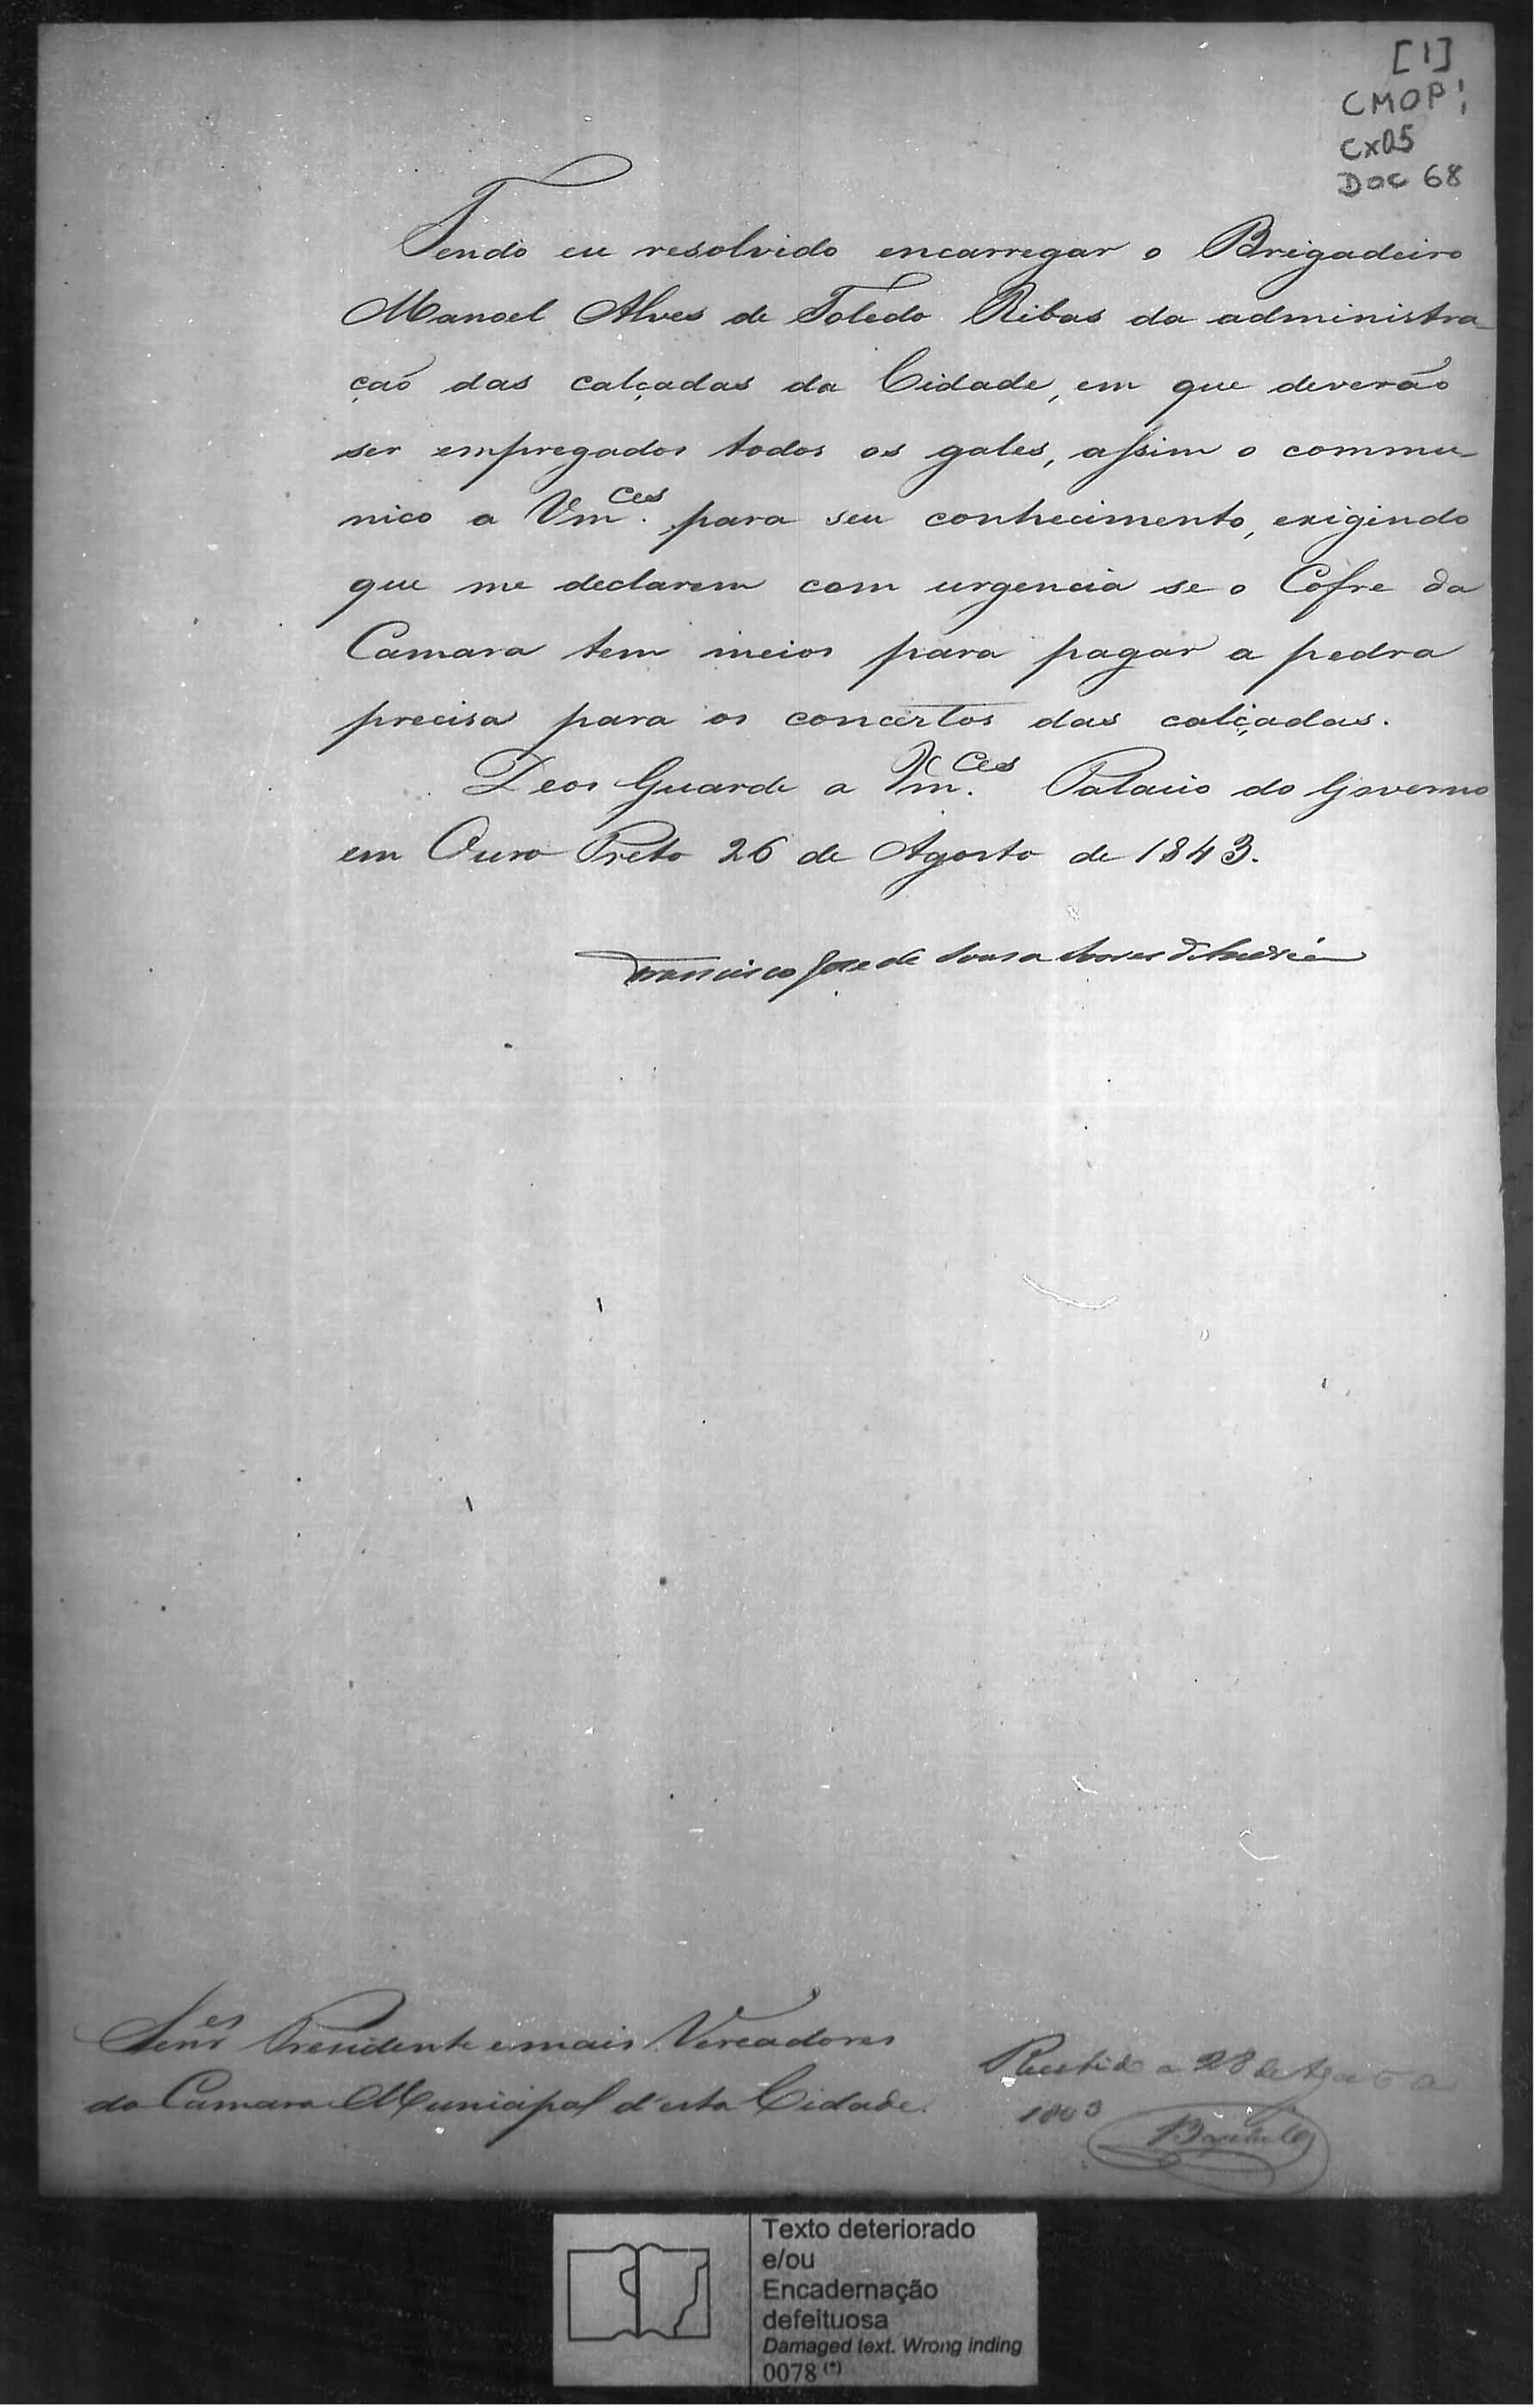 [1]
CMOP¦
CX05
DOC 68
Tendo eu resolvido encarregar o Brigadeiro
Manoel Alves de Toledo Ribas da administra-
çaõ das calçadas da Cidade, em que deverão
ser empregados todos os gales, assim o commu-
nico a Vm.ces para seu conhecimento, exigindo
que me declarem com urgencia se o Cofre da
Camara tem meios para pagar a pedra
precisa para os concertos das calçadas.
Deos Guarde a Vm.ces Palacio do Governo
em Ouro Preto 26 de Agosto de 1843.
Francisco José de Sousa Soares d'Andréa
Senr.es Presidente e mais Vereadores
da Camara Municipal d'esta Cidade.
Recebido a 28 de Agosto
1843
Texto deteriorado
e/ou
Encadernação
defeituosa
Damaged text. Wrong inding
0078 (*)